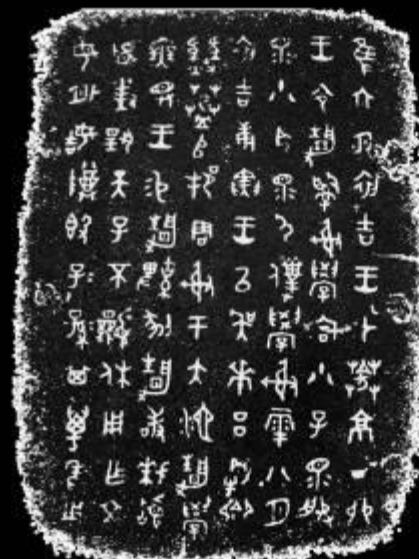 隹六月初吉王才𦱤京丁卯
王令靜𤔲射學宮小子眔服
眔小臣眔尸僕學射雩八月
初吉庚寅王以吳𠦪呂
卿師邦周射于大池靜學
無王易靜鞞剢靜敢拜𩒨
首對揚天子不顯休用乍文
母外姞尊簋子子孫孫其萬年用